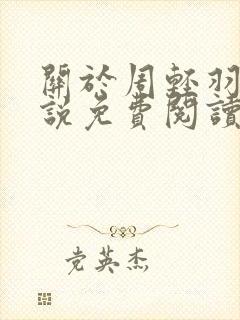 關於周輕羽
說免費閱讀
党英杰